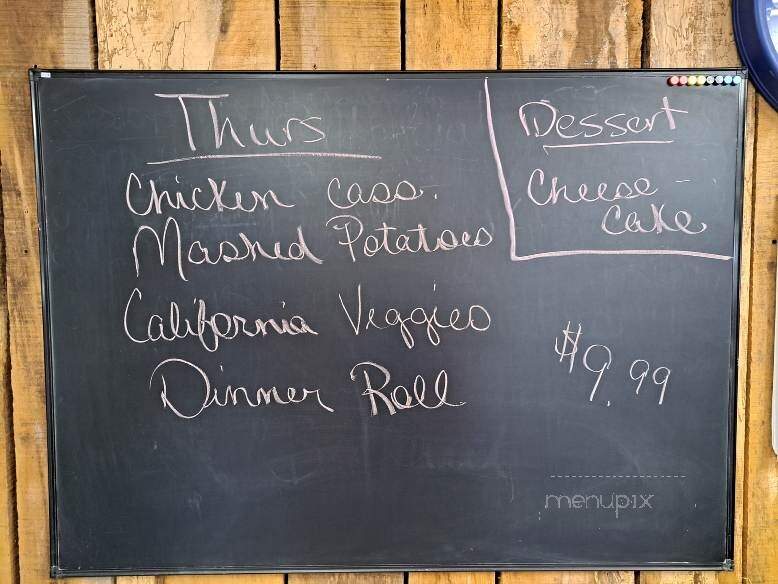 Thurs
Chicken cass.
Mashed Potatoes
California Veggies
Dinner Roll
Dessert
Cheese-
Cake
$9.99
menupix